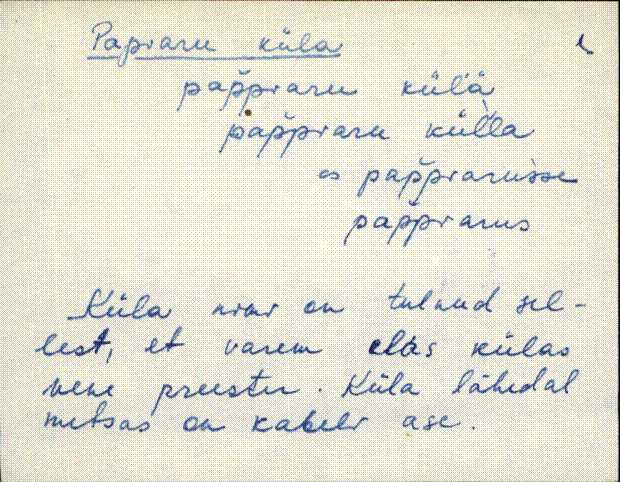 Papiaru küla
pap̌p̌iaru külä
pap̌p̌iaru külla
es pap̌p̌iarusse
pap̌p̌iarus
Küla nimi on tulnud sel-
lest, et varem elas külas
vene preester. Küla lähedal
metsas on kabeli ase.